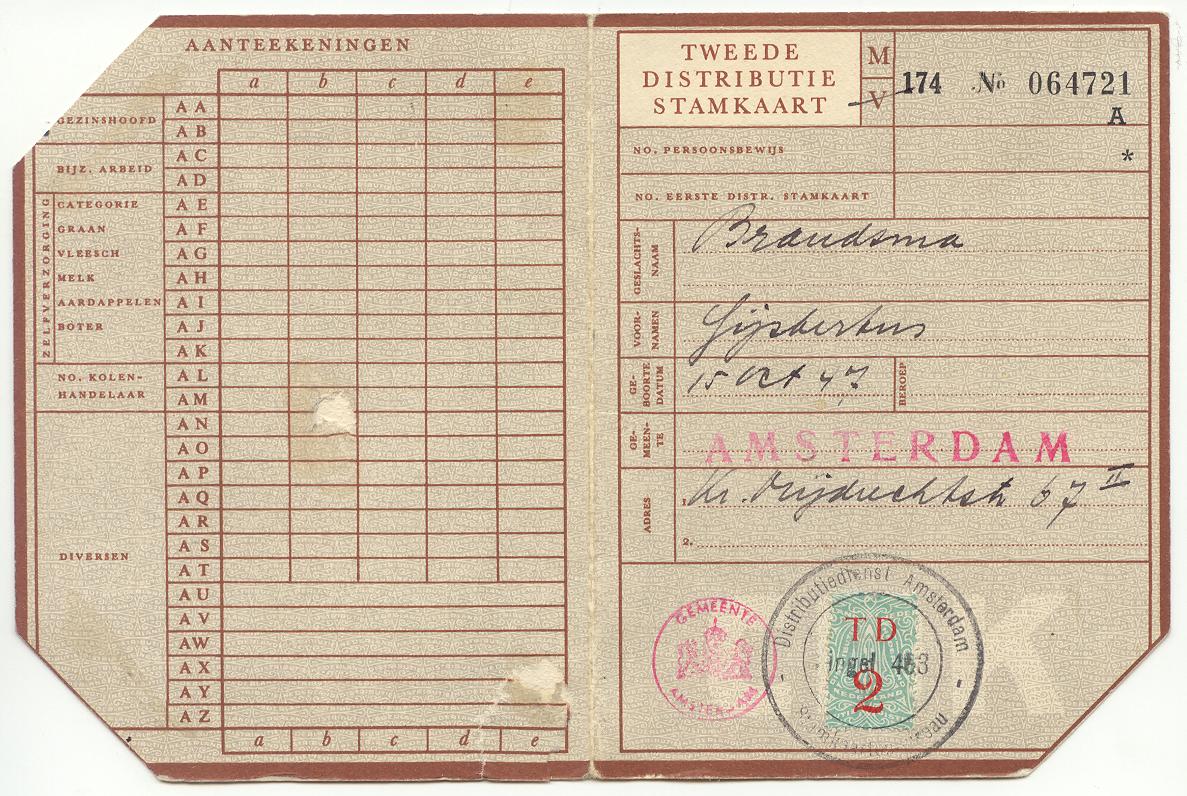 AANTEEKENINGEN
a b c d e
GEZINSHOOFD
AA
AB
BIJZ. ARBEID
AC
AD
ZELFVERZORGING
CATEGORIE AE
GRAAN AF
VLEESCH AG
MELK AH
AARDAPPELEN AI
BOTER AJ
AK
NO. KOLEN-
HANDELAAR
AL
AM
AN
AO
AP
AQ
AR
DIVERSEN
AS
AT
AU
AV
AW
AX
AY
AZ
a b c d e
TWEEDE
DISTRIBUTIE
STAMKAART
M
V
174 No 064721
A
*
NO. PERSOONSBEWIJS
NO. EERSTE DISTR. STAMKAART
GESLACHTS-
NAAM
Brandsma
VOOR-
NAMEN
Gijsbertus
GE-
BOORTE
DATUM
15 Oct 47
BEROEP
GE-
MEEN-
TE
AMSTERDAM
ADRES
1. Kr. Mijdrechtstr 67 II
2.
GEMEENTE
AMSTERDAM
Distributiedienst Amsterdam
TD
Singel 463
2
NEDERLAND
K